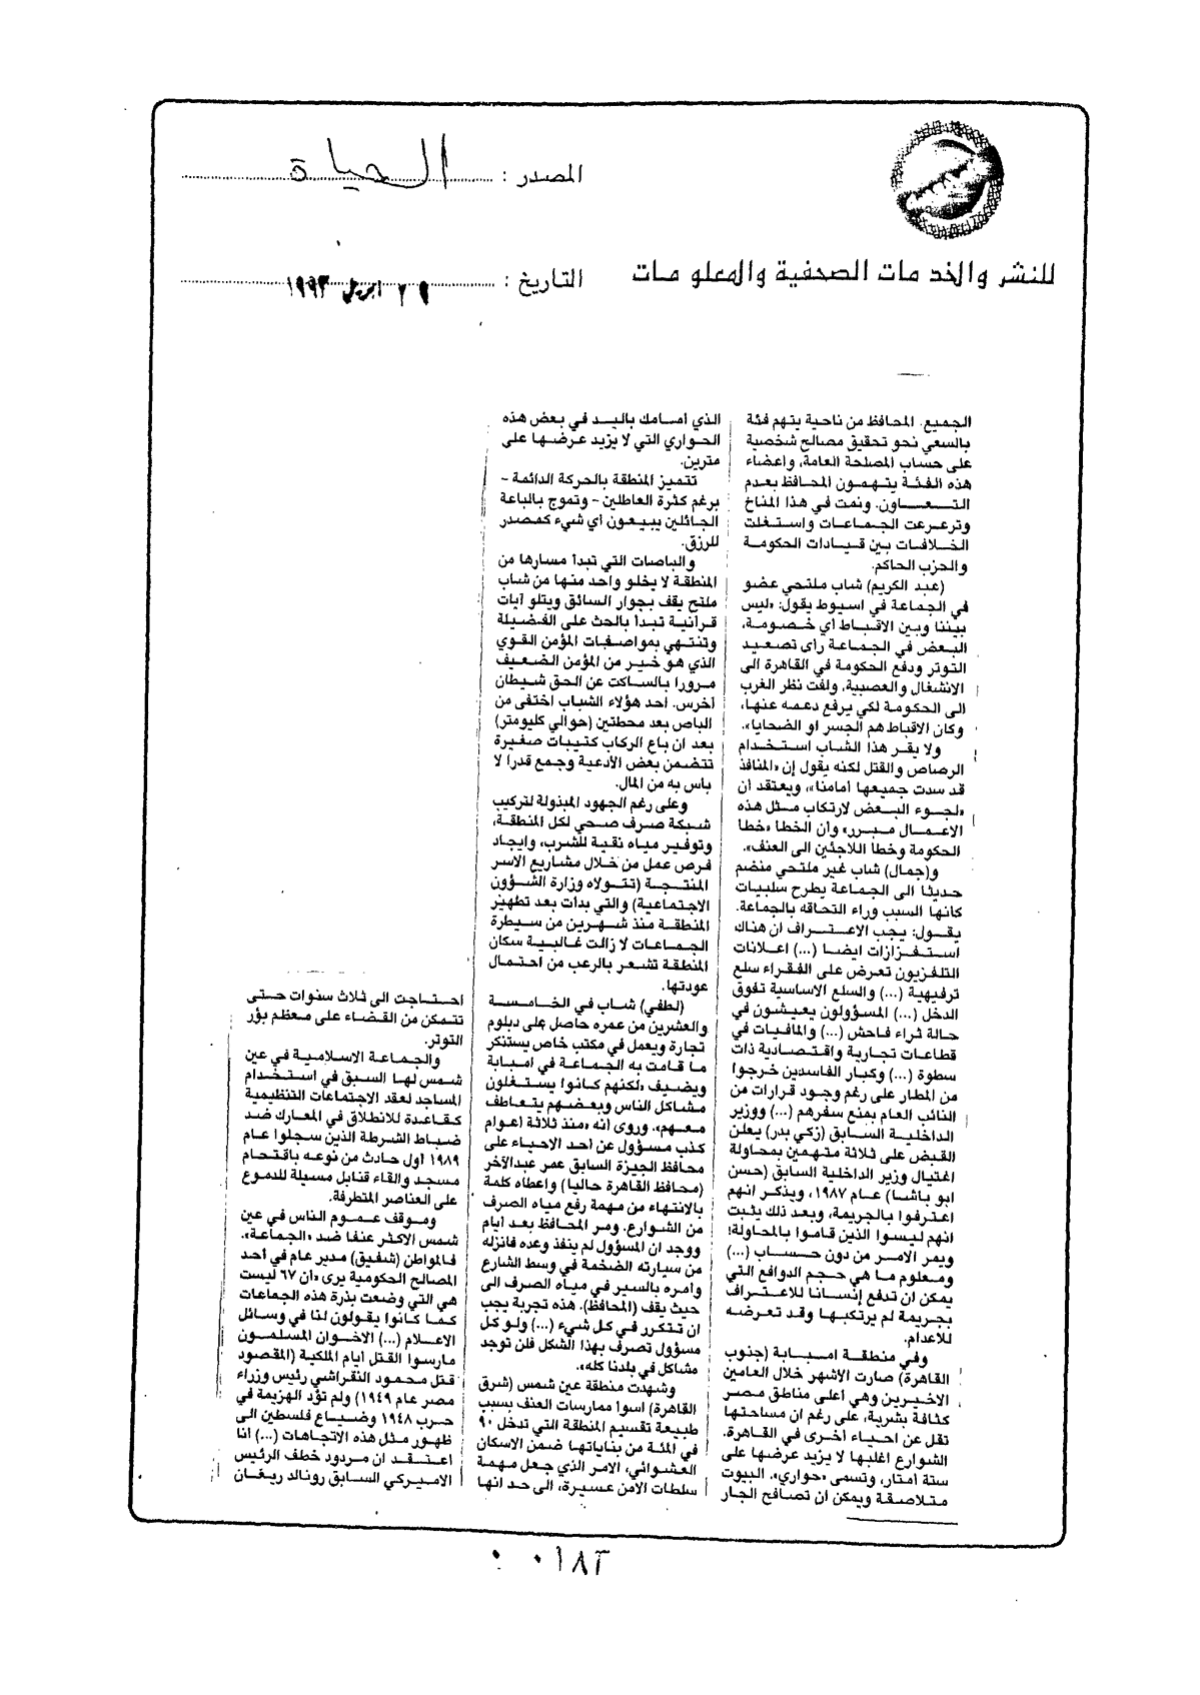 المصدر : الحياة
للنشر والخدمات الصحفية والمعلومات
التاريخ : ٢٩ ابريل ١٩٩٣
الجميع. المحافظ من ناحية يتهم فئة
بالسعي نحو تحقيق مصالح شخصية
على حساب المصلحة العامة، واعضاء
هذه الفئة يتهمون المحافظ بعدم
التعاون. ونمت في هذا المناخ
وترعرعت الجماعات واستغلت
الخلافات بين قيادات الحكومة
والحزب الحاكم.
(عبد الكريم) شاب ملتحي عضو
في الجماعة في اسيوط يقول: «ليس
بيننا وبين الاقباط أي خصومة،
البعض في الجماعة رأى تصعيد
التوتر ودفع الحكومة في القاهرة الى
الانشغال والعصبية، ولفت نظر الغرب
الى الحكومة لكي يرفع دعمه عنها،
وكان الاقباط هم الجسر او الضحايا».
ولا يقر هذا الشاب استخدام
الرصاص والقتل لكنه يقول إن «المنافذ
قد سدت جميعها أمامنا»، ويعتقد أن
«لجوء البعض لارتكاب مثل هذه
الاعمال مبرر» وأن الخطا «خطا
الحكومة وخطا اللاجئين الى العنف».
و(جمال) شاب غير ملتحي منضم
حديثا الى الجماعة يطرح سلبيات
كانها السبب وراء التحاقه بالجماعة.
يقول: يجب الاعتراف ان هناك
استفزازات ايضا (...) اعلانات
التلفزيون تعرض على الفقراء سلع
ترفيهية (...) والسلع الاساسية تفوق
الدخل (...) المسؤولون يعيشون في
حالة ثراء فاحش (...) والمافيات في
قطاعات تجارية واقتصادية ذات
سطوة (...) وكبار الفاسدين خرجوا
من المطار على رغم وجود قرارات من
النائب العام بمنع سفرهم (...) ووزير
الداخلية السابق (زكي بدر) يعلن
القبض على ثلاثة متهمين بمحاولة
اغتيال وزير الداخلية السابق (حسن
ابو باشا) عام ١٩٨٧، ويذكر انهم
اعترفوا بالجريمة، وبعد ذلك يثبت
انهم ليسوا الذين قاموا بالمحاولة!
ويمر الامر من دون حساب (...)
ومعلوم ما هي حجم الدوافع التي
يمكن ان تدفع إنسانا للاعتراف
بجريمة لم يرتكبها وقد تعرضه
للاعدام.
وفي منطقة امبابة (جنوب
القاهرة) صارت الأشهر خلال العامين
الاخيرين وهي أعلى مناطق مصر
كثافة بشرية، على رغم ان مساحتها
تقل عن احياء اخرى في القاهرة.
الشوارع اغلبها لا يزيد عرضها على
ستة امتار، وتسمى «حواري». البيوت
متلاصقة ويمكن ان تصافح الجار
الذي أمامك باليد في بعض هذه
الحواري التي لا يزيد عرضها على
مترين.
تتميز المنطقة بالحركة الدائمة -
برغم كثرة العاطلين - وتموج بالباعة
الجائلين يبيعون أي شيء كمصدر
للرزق.
والباصات التي تبدأ مسارها من
المنطقة لا يخلو واحد منها من شاب
ملتح يقف بجوار السائق ويتلو آيات
قرآنية تبدأ بالحث على الفضيلة
وتنتهي بمواصفات المؤمن القوي
الذي هو خير من المؤمن الضعيف
مرورا بالساكت عن الحق شيطان
أخرس. احد هؤلاء الشباب اختفى من
الباص بعد محطتين (حوالي كليومتر)
بعد ان باع الركاب كتيبات صغيرة
تتضمن بعض الأدعية وجمع قدرا لا
باس به من المال.
وعلى رغم الجهود المبذولة لتركيب
شبكة صرف صحي لكل المنطقة،
وتوفير مياه نقية للشرب، وايجاد
فرص عمل من خلال مشاريع الاسر
المنتجة (تتولاه وزارة الشؤون
الاجتماعية) والتي بدات بعد تطهير
المنطقة منذ شهرين من سيطرة
الجماعات لا زالت غالبية سكان
المنطقة تشعر بالرعب من احتمال
عودتها.
(لطفي) شاب في الخامسة
والعشرين من عمره حاصل على دبلوم
تجارة ويعمل في مكتب خاص يستنكر
ما قامت به الجماعة في امبابة
ويضيف «لكنهم كانوا يستغلون
مشاكل الناس وبعضهم يتعاطف
معهم». وروى انه «منذ ثلاثة اعوام
كذب مسؤول عن احد الاحياء على
محافظ الجيزة السابق عمر عبدالآخر
(محافظ القاهرة حاليا) واعطاه كلمة
بالانتهاء من مهمة رفع مياه الصرف
من الشوارع. ومر المحافظ بعد ايام
ووجد ان المسؤول لم ينفذ وعده فانزله
من سيارته الضخمة في وسط الشارع
وامره بالسير في مياه الصرف الى
حيث يقف (المحافظ). هذه تجربة يجب
ان تتكرر في كل شيء (...) ولو كل
مسؤول تصرف بهذا الشكل فلن توجد
مشاكل في بلدنا كله».
وشهدت منطقة عين شمس (شرق
القاهرة) اسوا ممارسات العنف بسبب
طبيعة تقسيم المنطقة التي تدخل ٩٠
في المئة من بناياتها ضمن الاسكان
العشوائي، الامر الذي جعل مهمة
سلطات الامن عسيرة، الى حد انها
احتاجت الى ثلاث سنوات حتى
تتمكن من القضاء على معظم بؤر
التوتر.
والجماعة الاسلامية في عين
شمس لها السبق في استخدام
المساجد لعقد الاجتماعات التنظيمية
كقاعدة للانطلاق في المعارك ضد
ضباط الشرطة الذين سجلوا عام
١٩٨٩ أول حادث من نوعه باقتحام
مسجد والقاء قنابل مسيلة للدموع
على العناصر المتطرفة.
وموقف عموم الناس في عين
شمس الاكثر عنفا ضد «الجماعة».
فالمواطن (شفيق) مدير عام في أحد
المصالح الحكومية يرى «ان ٦٧ ليست
هي التي وضعت بذرة هذه الجماعات
كما كانوا يقولون لنا في وسائل
الاعلام (...) الاخوان المسلمون
مارسوا القتل ايام الملكية (المقصود
قتل محمود النقراشي رئيس وزراء
مصر عام ١٩٤٩) ولم تؤد الهزيمة في
حرب ١٩٤٨ وضياع فلسطين الى
ظهور مثل هذه الاتجاهات (...) أنا
اعتقد ان مردود خطف الرئيس
الاميركي السابق رونالد ريغان
٠١٨٣